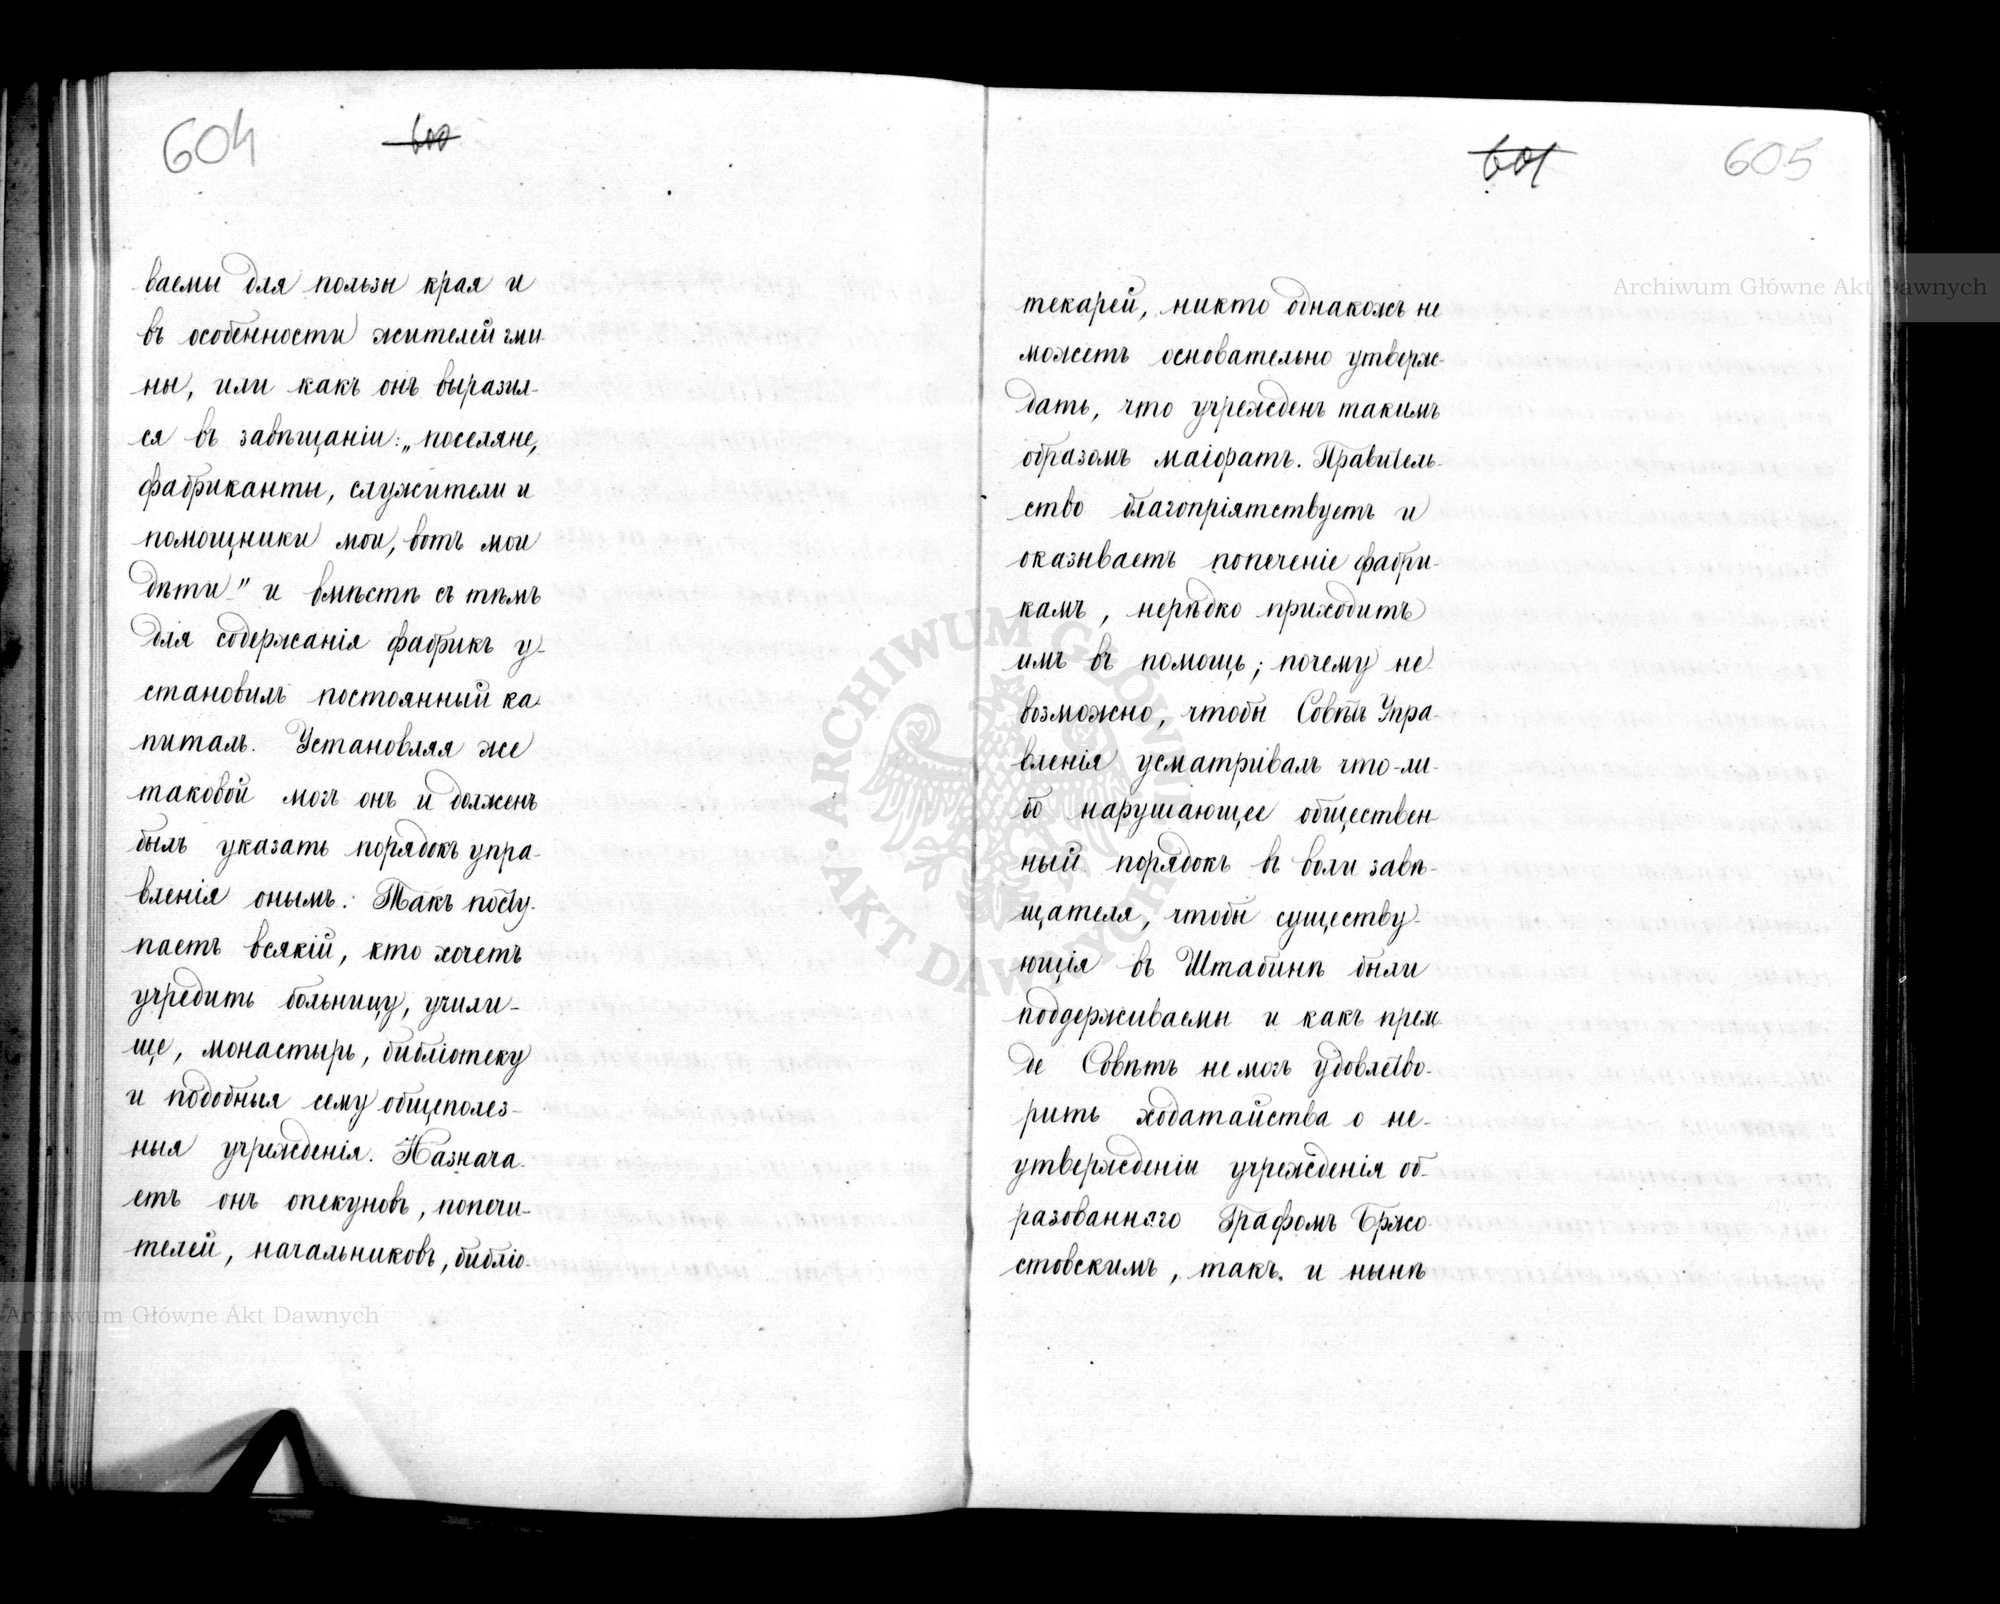 604
600
ваемы для пользы края и
въ особенности жителей гми-
ны, или какъ онъ выразил-
ся въ завѣщаніи: „поселяне,
фабриканты, служители и
помощники мои, вотъ мои
дѣти" и вмѣстѣ съ тѣмъ
для содержанія фабрикъ у-
становилъ постоянный ка-
питалъ. Установляя же
таковой могъ онъ и долженъ
былъ указать порядокъ упра-
вленія онымъ. Такъ посту-
паетъ всякій, кто хочетъ
учредить больницу, учили-
ще, монастырь, библіотеку
и подобныя сему общеполез-
ныя учрежденія. Назнача-
етъ онъ опекуновъ, попечи-
телей, начальниковъ, библіо-
601
605
текарей, никто однакожъ не
можетъ основательно утверж-
дать, что учрежденъ такимъ
образомъ маіоратъ. Правитель-
ство благопріятствуетъ и
оказываетъ попеченіе фабри-
камъ, нерѣдко приходитъ
имъ въ помощь; почему не-
возможно, чтобы Совѣтъ Упра-
вленія усматривалъ что-ли-
бо нарушающее обществен-
ный порядокъ въ воли завѣ-
щателя, чтобы существу-
ющія въ Штабинѣ были
поддерживаемы и какъ преж-
де Совѣтъ не могъ удовлетво-
рить ходатайства о не-
утвержденіи учрежденія об-
разованнаго Графомъ Бржо-
стовскимъ, такъ и нынѣ
Archiwum Główne Akt Dawnych
ARCHIWUM GŁÓWNE
AKT DAWNYCH
Archiwum Główne Akt Dawnych